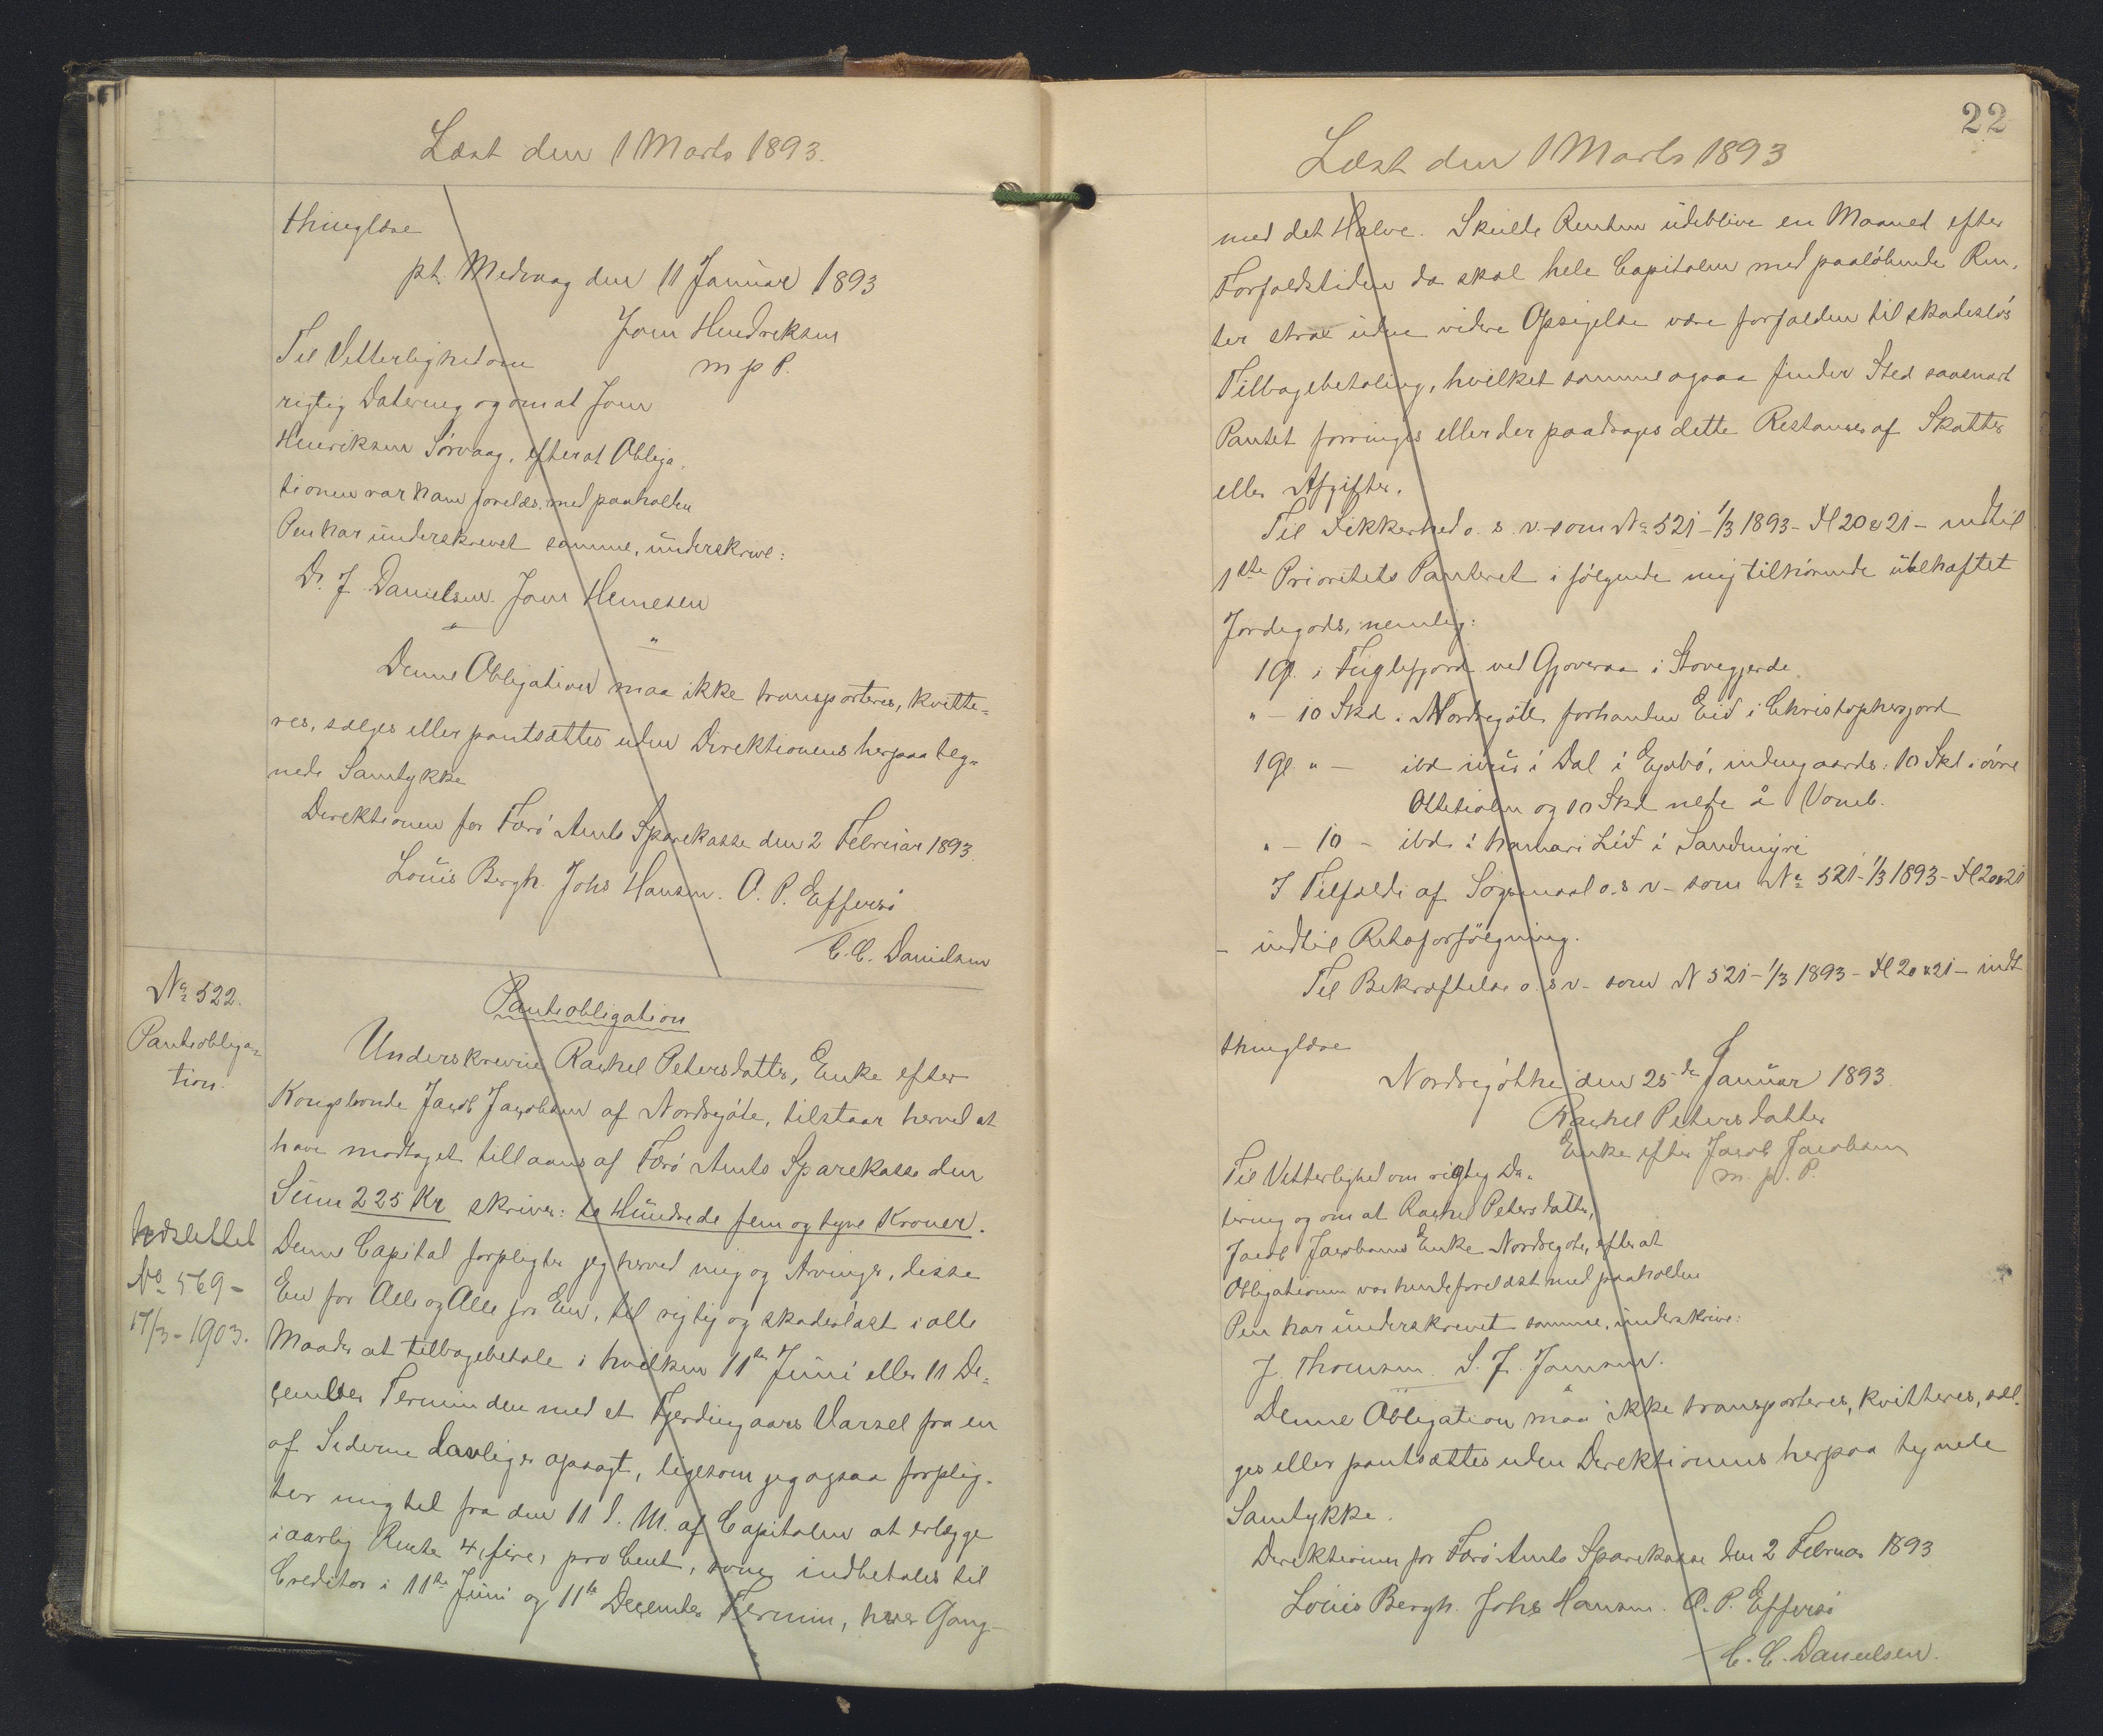 Læst den 1 Marts 1893.
thinglæse
pt. Midvaag den 11 Januar 1893
Joen Hendriksen
m p P.
Til Vitterlighed om
rigtig Datering og om at Joen
Henriksen Sørvaag, efter at Obliga-
tionen var ham forelæs, med paaholden
Pen har underskrevet samme, underskrive:
D. J. Danielsen. Joen Hemesen
Denne Obligation maa ikke transporteres, kvitte=
res, sælges eller pantsættes uden Direktionens herpaa teg=
nede Samtykke
Direktionen for Færø Amts Sparekasse den 2 Februar 1893.
Louis Bergh. Johs Hansen. O. P. Effersø
C. C. Danielsen
No 522.
Panteobliga=
tion.
Panteobligation
Underskrevne Rachel Petersdatter, Enke efter
Kongsbonde Jacob Jacobsen af Nordregøte, tilstaar herved at
have modtaget tillaans af Færø Amts Sparekasse den
Sum 225 Kr skriver: to Hundrede fem og tyve Kroner.
Denne Capital forpligter jeg herved mig og Arvinger, disse
En for Alle og Alle for En, til rigtig og skadesløst i alle
Maader at tilbagebetale i hvilken 11te Juni eller 11 De=
cember Termin den med et Fjerdingaars Varsel fra en
af Siderne lovligen opsagt, ligesom jeg ogsaa forplig-
ter mig til fra den 11 d. M. af Capitalen at erlægge
i aarlig Rente 4, fire, pro Cent, som indbetales til
Creditor i 11te Juni og 11te December Termin, hver Gang
Udslettet
No 569-
17/3-1903.
22
Læst den 1 Marts 1893
med det Halve. Skulde Renten udeblive en Maaned efter
Forfaldstiden da skal hele Capitalen med paaløbende Ren-
ter strax uden videre Opsigelse være forfalden til skadesløs
Tilbagebetaling, hvilket samme ogsaa finder Sted saasnart
Pantet forringes eller der paadrages dette Restancer af Skatter
eller Afgifter.
Til Sikkerhed o. s. v. som No 521 - 1/3 1893 - Fl 20 & 21 - indtil
1ste Prioritets Panteret i følgende mig tilhørende ubehæftet
Jordegods, nemlig:
1 gl. i Fuglefjord ved Gjoveraa i Stovegjerde
" - 10 Skd. i Nordregøte forhanden Eid i Christophersjord
1 gl. " - ibd inni i Dal i Egsbø, indengaards: 10 Skd i øvre
og 10 Skd nede
" - 10 - ibd i hamari Lid i Sandmyri
I Tilfælde af Søgsmaal o. s v - som No 521 - 1/3 1893 - Fl 20&21
- indtil Retsforfølgning.
Til Bekræftelse o. s v - som N 521 - 1/3 1893 - Fl 20 & 21 - indt
thinglæse
Nordregøthe den 25de Januar 1893.
Rachel Petersdatter
Enke efter Jacob Jacobsen
m. p. P.
Til Vitterlighed om rigtig Da-
tering og om at Rachel Petersdatter,
Jacob Jacobsens Enke Nordregøte, efter at
Obligationen var hende forelæst med paaholden
Pen har underskrevet samme, underskrive:
J. Thomsen. S. J. Joensen.
Denne Obligation maa ikke transporteres, kvitteres, sæl-
ges eller pantsættes uden Direktionens herpaa tegnede
Samtykke.
Direktionen for Færø Amts Sparekasse den 2 Februar 1893
Louis Bergh. Johs Hansen. O. P. Effersø
C. C. Danielsen.